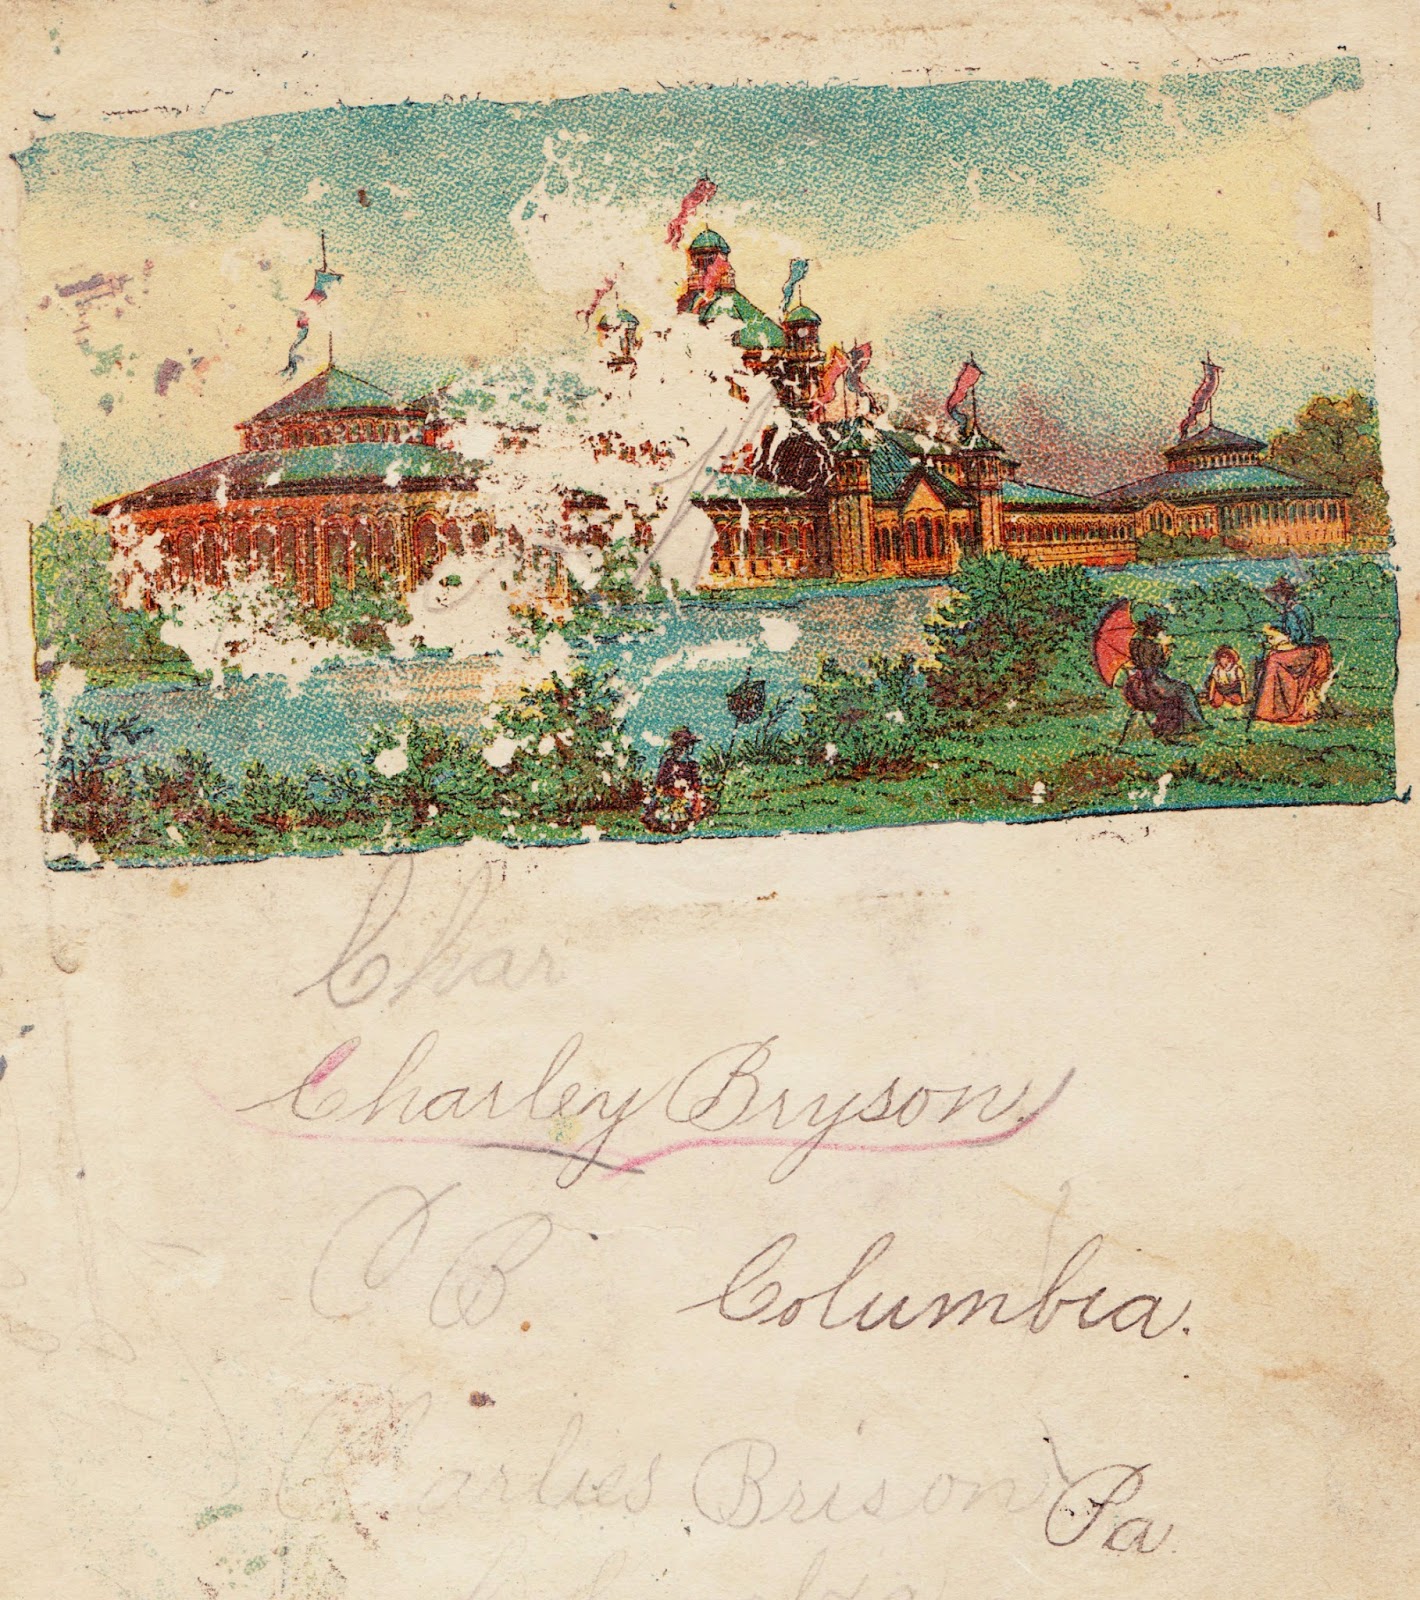 Char
Charley Bryson.
C B.
Columbia.
Charlies Brison
Pa